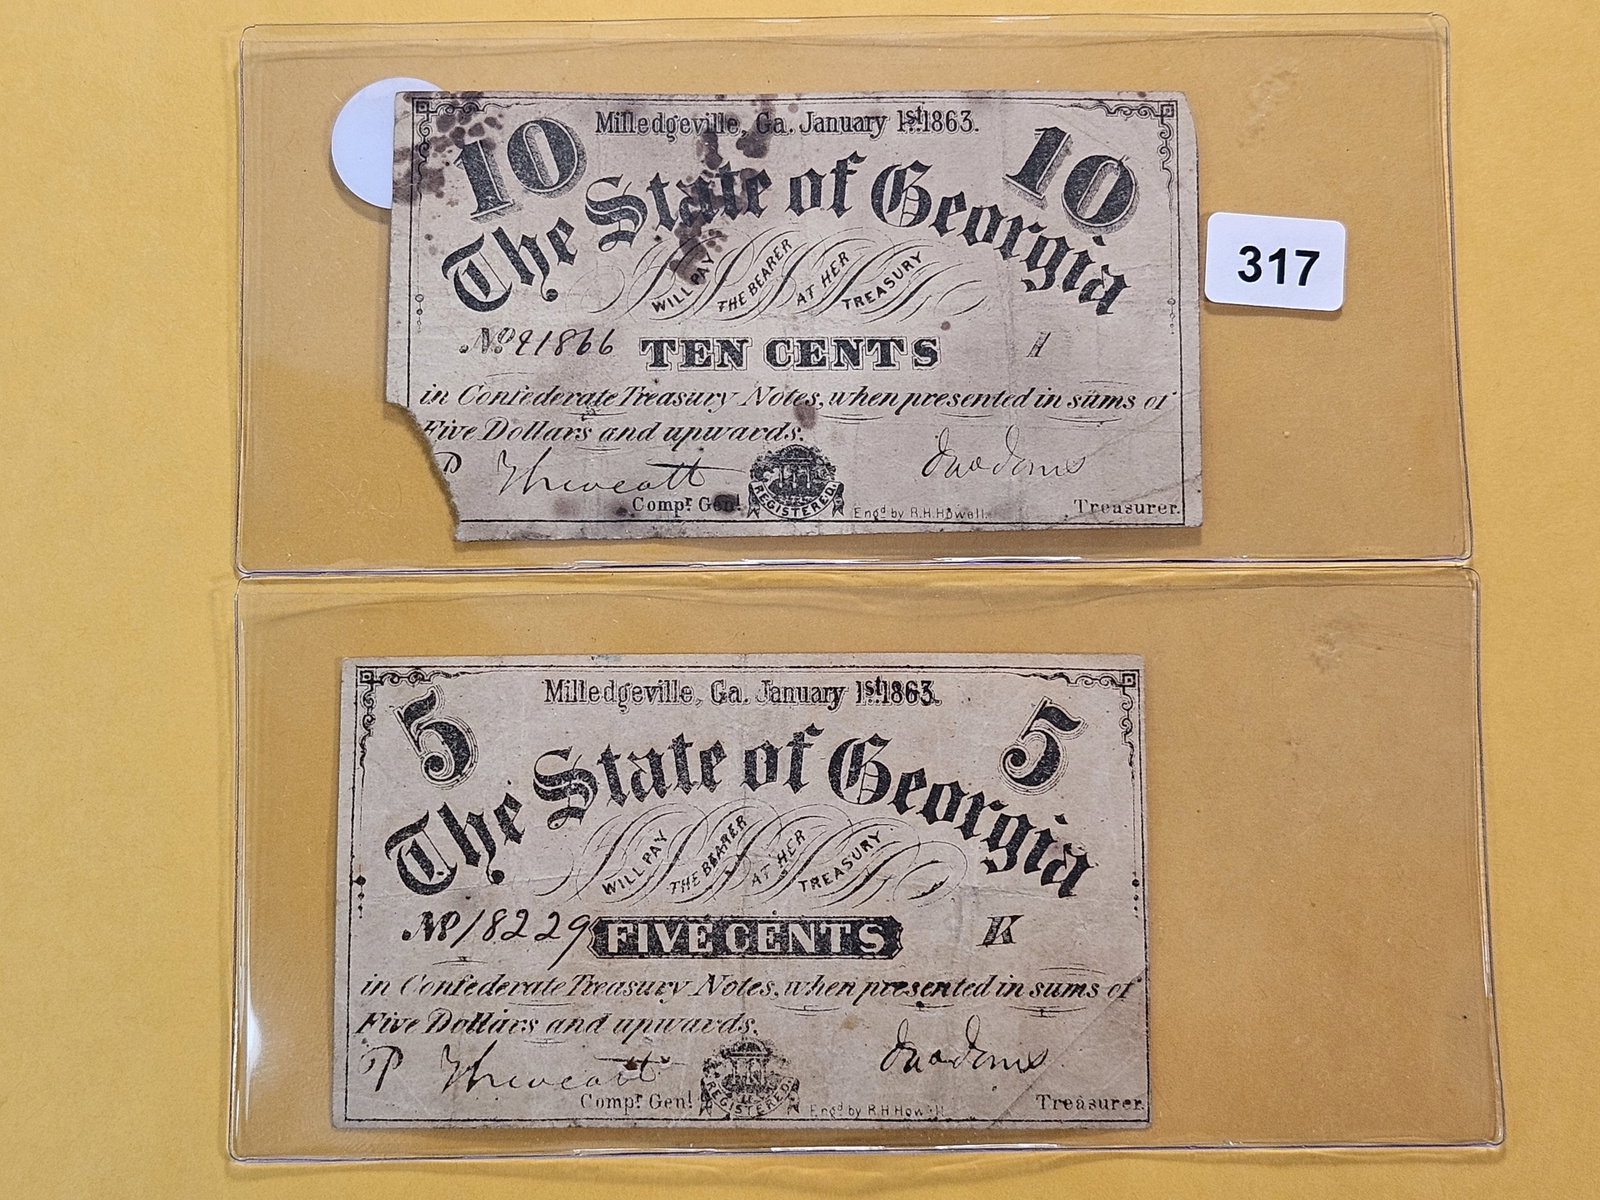 10 Milledgeville, Ga. January 1st 1863. 10
The State of Georgia
WILL PAY THE BEARER AT HER TREASURY
317
No 21866 TEN CENTS
in Confederate Treasury Notes, when presented in sums of
Five Dollars and upwards.
P Thweatt
Jno Jones
REGISTERED.
Compr. Genl. Engd by R.H. Howell. Treasurer.
Milledgeville, Ga. January 1st 1863.
5 5
The State of Georgia
WILL PAY THE BEARER AT HER TREASURY
No 18229 FIVE CENTS K
in Confederate Treasury Notes, when presented in sums of
Five Dollars and upwards.
P Thweatt
Jno Jones
REGISTERED
Compr. Genl. Engd by R.H. Howell. Treasurer.